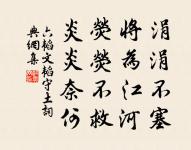 涓涓不塞
將為江河
熒熒不救
炎炎奈何
六韜文韜守土詞
典網集